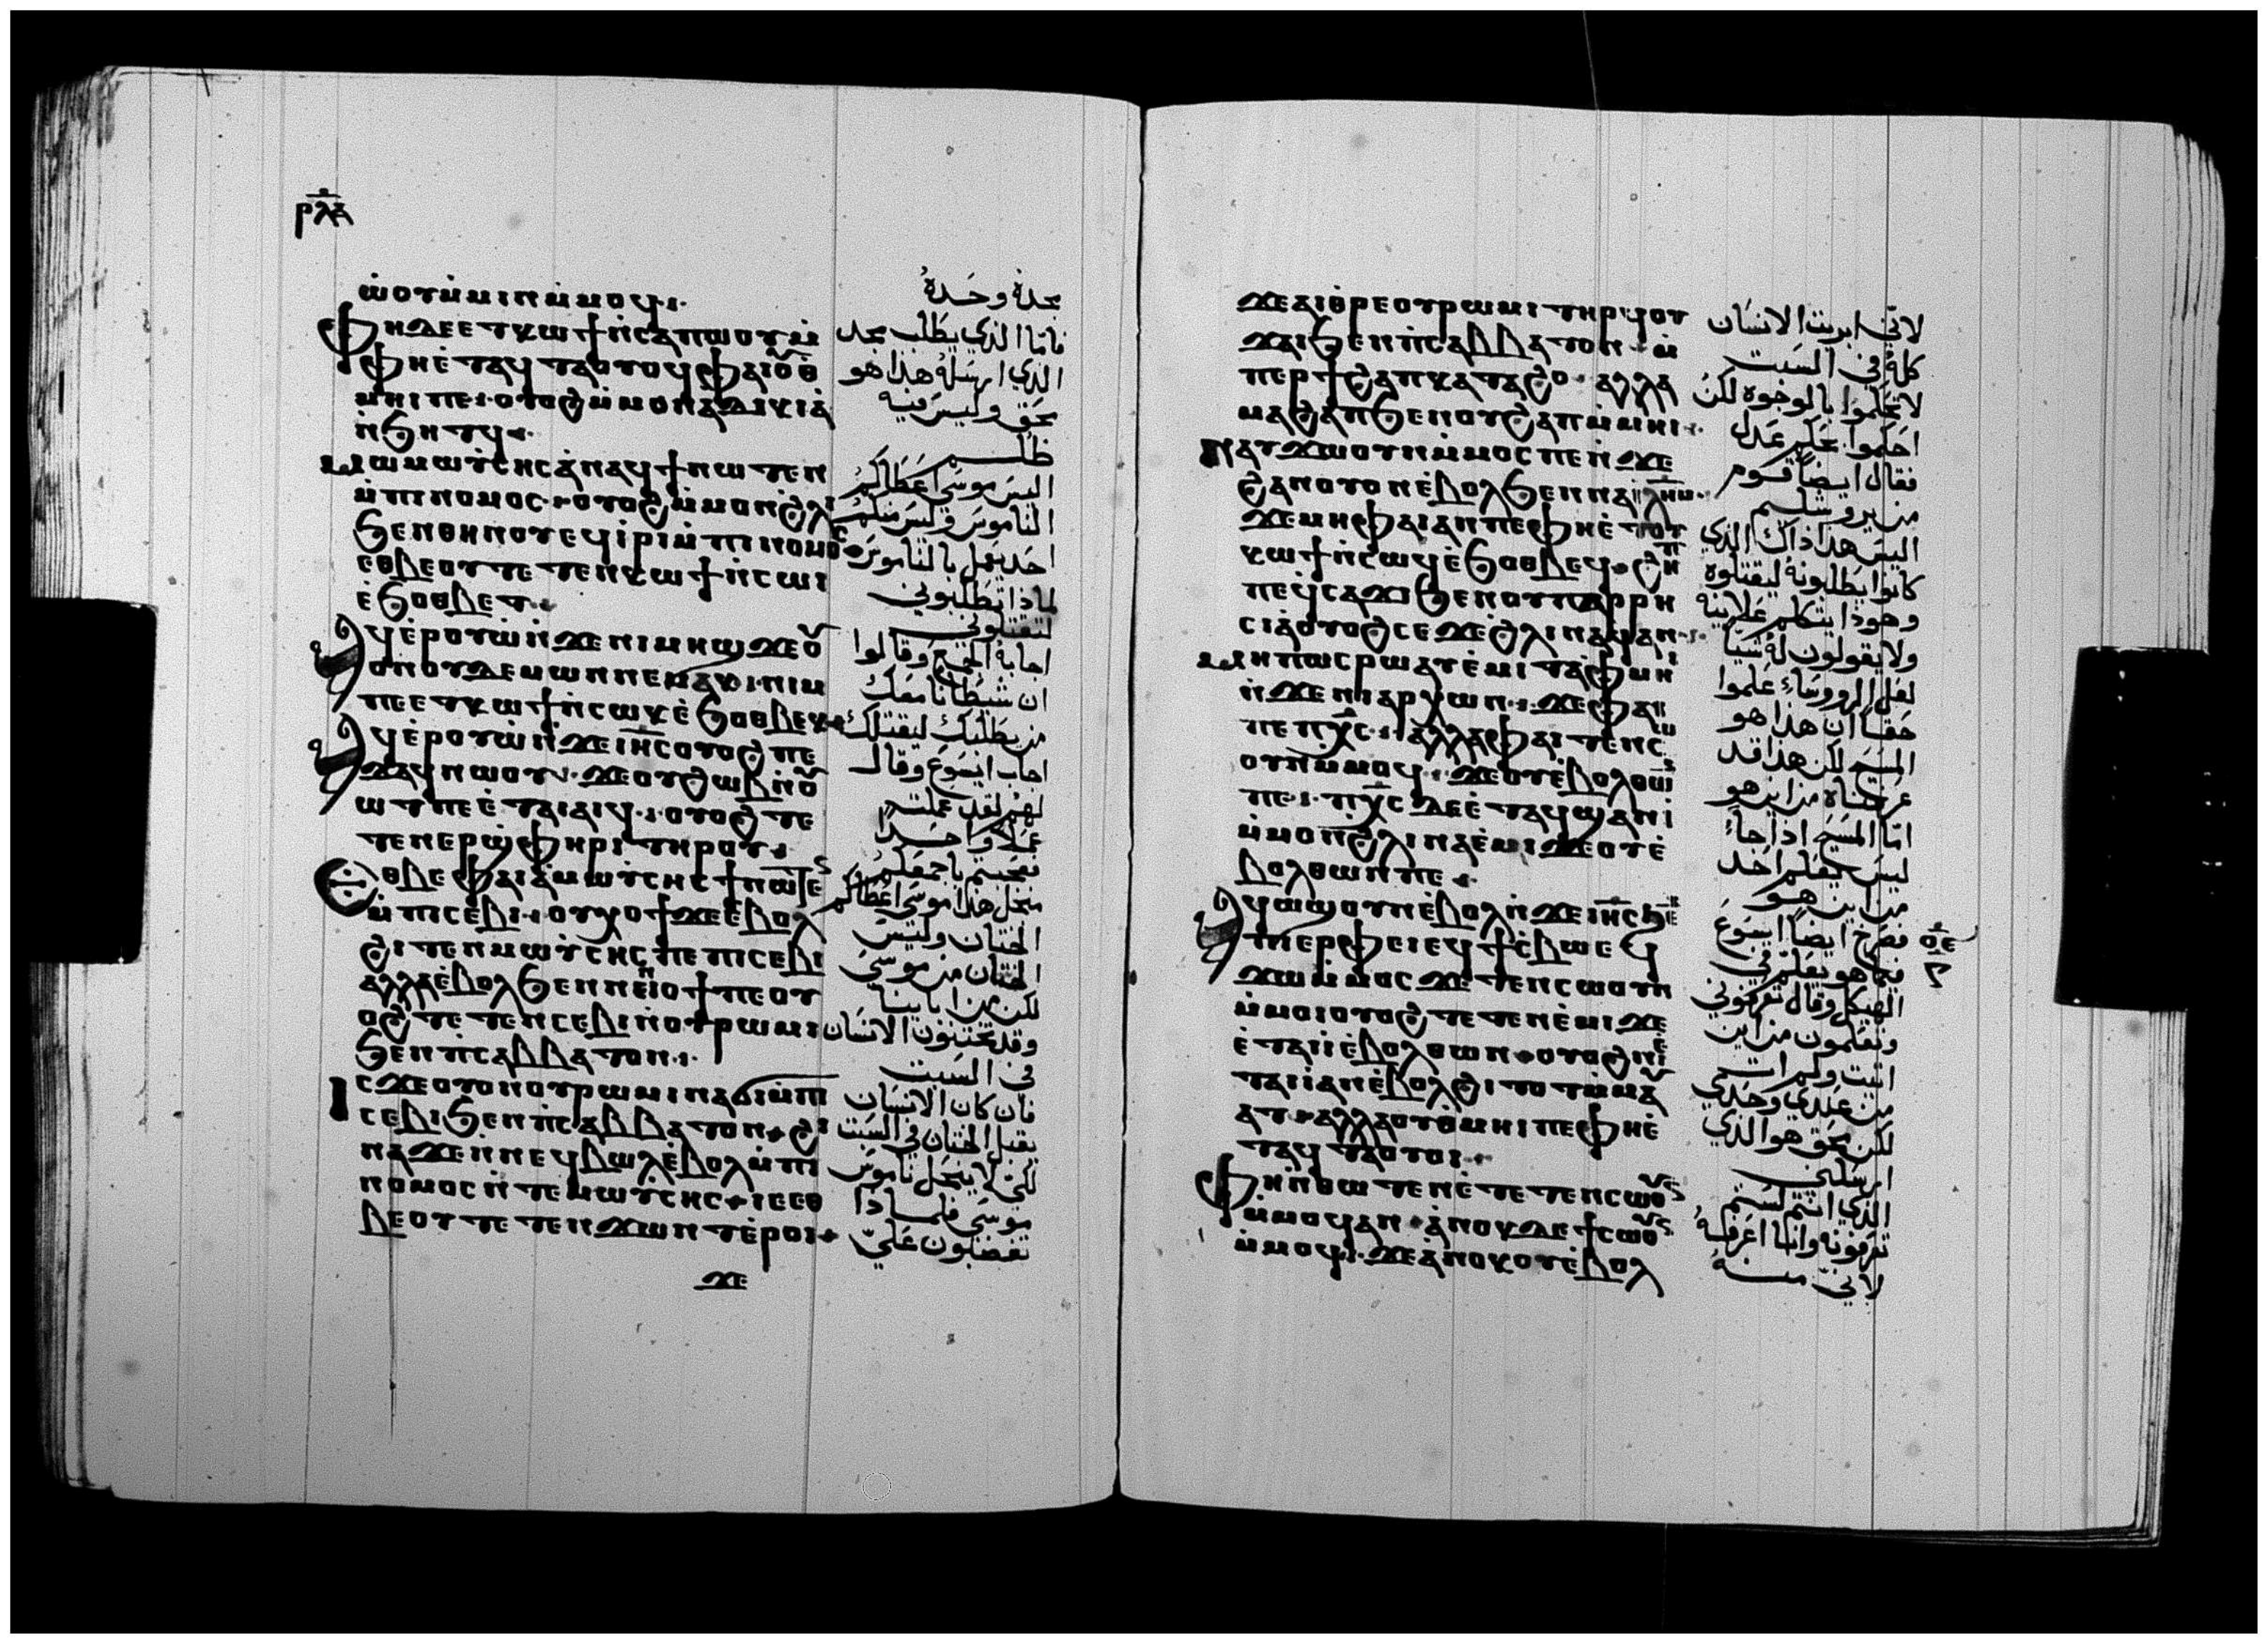 ⲣⲗⲇ
ⲱⲟⲩⲙ̀ⲙⲓⲛⲙ̀ⲙⲟϥ
ⲫⲏⲇⲉⲉⲧⲕⲱϯⲛ̀ⲥⲁⲡⲱⲟⲩⲙ̀
ⲫⲏⲉ̀ⲧⲁϥⲧⲁⲟⲩⲟϥⲫⲁⲓⲟⲩⲑ
ⲙⲏⲓⲡⲉ ⲟⲩⲟϩⲙ̀ⲙⲟⲛⲁⲇⲓⲕⲓⲁ
ⲛ̀ϧⲏⲧϥ
ⲙⲱⲩ̀ⲥⲏⲥⲁⲛⲁϥϯⲛⲱⲧⲉⲛ
ⲙ̀ⲡⲓⲛⲟⲙⲟⲥ ⲟⲩⲟϩⲙ̀ⲙⲟⲛϩ̀ⲗⲓ
ϧⲉⲛⲑⲏⲛⲟⲩⲉϥⲓ̀ⲣⲓⲙ̀ⲡⲓⲛⲟⲙⲟⲥ
ⲉⲑⲃⲉⲟⲩⲧⲉⲧⲉⲛⲕⲱϯⲛ̀ⲥⲱⲓ
ⲉ̀ϧⲟⲑⲃⲉⲧ
ⲁϥⲉ̀ⲣⲟⲩⲱ̀ⲛ̀ϫⲉⲡⲓⲙⲏϣϫⲉⲟⲩ
ⲟⲛⲟⲩⲇⲉⲙⲱⲛⲛⲉⲙⲁⲕ ⲛⲓⲙ
ⲡⲉⲧⲕⲱϯⲛ̀ⲥⲱⲕⲉ̀ϧⲟⲑⲃⲉⲕ
ⲁϥⲉ̀ⲣⲟⲩⲱ̀ⲛ̀ϫⲉⲓⲏ̅ⲥⲟⲩⲟϩⲡⲉ
ϫⲁϥⲛⲱⲟⲩ ϫⲉⲟⲩϩⲱⲃⲛ̀ⲟⲩ
ⲱⲧⲡⲉⲉ̀ⲧⲁⲓⲁⲓϥ ⲟⲩⲟϩⲧⲉ
ⲧⲉⲛⲉⲣϣ̀ⲫⲏⲣⲓⲧⲏⲣⲟⲩ
ⲉⲑⲃⲉⲫⲁⲓⲁ̀ⲙⲱⲩ̀ⲥⲏⲥϯⲛⲱⲧⲉⲛ
ⲙ̀ⲡⲓⲥⲉⲃⲓ ⲟⲩⲭⲟϯϫⲉⲉⲃⲟⲗ
ϩⲓⲧⲉⲛⲙⲱⲩ̀ⲥⲏⲥⲡⲉⲡⲓⲥⲉⲃⲓ
ⲁⲗⲗⲁⲉ̀ⲃⲟⲗϧⲉⲛⲛⲉⲓⲟϯⲡⲉⲟⲩ
ⲟϩⲧⲉⲧⲉⲛⲥⲉⲃⲓⲛ̀ⲟⲩⲣⲱⲙⲓ
ϧⲉⲛⲡ̀ⲥⲁⲃⲃⲁⲧⲟⲛ
ⲓⲥϫⲉⲟⲩⲟⲛⲟⲩⲣⲱⲙⲓⲛⲁϭⲓⲙ̀ⲡⲓ
ⲥⲉⲃⲓϧⲉⲛⲡ̀ⲥⲁⲃⲃⲁⲧⲟⲛ ϩⲓ
ⲛⲁϫⲉⲛ̀ⲛⲉϥⲃⲱⲗⲉ̀ⲃⲟⲗⲙ̀ⲡⲓ
ⲛⲟⲙⲟⲥⲛ̀ⲧⲉⲙⲱⲩ̀ⲥⲏⲥ ⲓⲉⲉⲑ
ⲃⲉⲟⲩⲧⲉⲧⲉⲛϫⲱⲛⲧⲉ̀ⲣⲟⲓ
ϫⲉ
مجده وحده
فاما الذي يطلب مجد
الذي ارسله هذا هو
محق وليس فيه
ظلم
اليس موسى اعطاكم
الناموس وليس منكم
احد يعمل بالناموس
لماذا تطلبوني
لتقتلوني
اجابه الجمع وقالوا
ان شيطانا معك
من يطلبك ليقتلك
اجاب ايسوع وقال
لهم لقد عملت
عملا واحدا
فعجبتم باجمعكم
من اجل هذا موسى اعطاكم
الختان وليس
الختان من موسى
لكن من ابائنا
وقد تختنون الانسان
في السبت
فان كان الانسان
يقبل الختان في السبت
لكي لا ينحل ناموس
موسى فلماذا
تغضبون علي
ϫⲉⲁⲓⲑⲣⲉⲟⲩⲣⲱⲙⲓⲧⲏⲣϥⲟⲩ
ϫⲁⲓϧⲉⲛⲡ̀ⲥⲁⲃⲃⲁⲧⲟⲛ ⲙ̀
ⲡⲉⲣϯϩⲁⲡⲕⲁⲧⲁϩⲟ ⲁⲗⲗⲁ
ⲙⲁϩⲁⲡϧⲉⲛⲟⲩϩⲁⲡⲙ̀ⲙⲏⲓ
ⲛⲁⲩϫⲱⲟⲩⲛⲙ̀ⲙⲟⲥⲡⲉⲛ̀ϫⲉ
ϩⲁⲛⲟⲩⲟⲛⲉ̀ⲃⲟⲗϧⲉⲛⲛⲁⲓⲗⲏⲙ
ϫⲉⲙⲏⲫⲁⲓⲁⲛⲡⲉⲫⲏⲉ̀ⲧⲟⲩ
ⲕⲱϯⲛ̀ⲥⲱϥⲉ̀ϧⲟⲑⲃⲉϥ ϩⲏⲡ
ⲡⲉϥ̀ⲥⲁϫⲓϧⲉⲛⲟⲩⲡⲁⲣⲣⲏ
ⲥⲓⲁⲟⲩⲟϩⲥⲉϫⲉϩ̀ⲗⲓⲛⲁϥⲁⲛ
ⲙⲏⲡⲱⲥⲣⲱⲁⲩⲉ̀ⲙⲓⲧⲁⲫ̀ⲙⲏⲓ
ⲛ̀ϫⲉⲛⲓⲁⲣⲭⲱⲛ ϫⲉⲫⲁⲓ
ⲡⲉⲡⲭ̅ⲥ ⲁⲗⲗⲁⲫⲁⲓⲧⲉⲛⲥⲱ
ⲟⲩⲛⲙ̀ⲙⲟϥ ϫⲉⲟⲩⲉ̀ⲃⲟⲗⲑⲱⲛ
ⲡⲉ ⲡⲭ̅ⲥⲇⲉⲉ̀ⲧⲁϥϣⲁⲛⲓ̀
ⲙ̀ⲙⲟⲛϩ̀ⲗⲓⲛⲁⲉ̀ⲙⲓϫⲉⲟⲩⲉ̀
ⲃⲟⲗⲑⲱⲛⲡⲉ
ⲁϥⲱϣⲟⲩⲛⲉ̀ⲃⲟⲗⲛ̀ϫⲉⲓⲏ̅ⲥϧⲉⲛ
ⲡⲓⲉⲣⲫⲉⲓⲉϥϯⲥ̀ⲃⲱⲉϥ
ϫⲱⲙ̀ⲙⲟⲥϫⲉⲧⲉⲛⲥⲱⲟⲩⲛ
ⲙ̀ⲙⲟⲓⲟⲩⲟϩⲧⲉⲧⲉⲛⲉ̀ⲙⲓϫⲉ
ⲉ̀ⲧⲁⲓⲓ̀ⲉ̀ⲃⲟⲗⲑⲱⲛ ⲟⲩⲟϩⲛⲉ̀
ⲧⲁⲓⲓ̀ⲁⲛⲉ̀ⲃⲟⲗϩⲓⲧⲟⲧⲙ̀ⲙⲁⲩ
ⲁⲧ ⲁⲗⲗⲁⲟⲩⲑ̀ⲙⲏⲓⲡⲉⲫⲏⲉ̀
ⲧⲁϥⲧⲁⲟⲩⲟⲓ
ⲫⲏⲛ̀ⲑⲱⲧⲉⲛⲉ̀ⲧⲉⲧⲉⲛⲥⲱⲟⲩⲛ
ⲙ̀ⲙⲟϥⲁⲛ ⲁ̀ⲛⲟⲕⲇⲉϯⲥⲱⲟⲩⲛ
ⲙ̀ⲙⲟϥ ϫⲉⲁ̀ⲛⲟⲕⲟⲩⲉ̀ⲃⲟⲗ
لاني ابريت الانسان
كله في السبت
لا تحكموا بالوجوه لكن
احكموا بحكم عدل
فقال ايضا قوم
من يروشليم
اليس هذا ذاك الذي
كانوا يطلبونه ليقتلوه
وهوذا يتكلم علانية
ولا يقولون له شيا
لعل الرووساء علموا
حقا ان هذا هو
المسيح لكن هذا قد
عرفناه من اين هو
اما المسيح اذا جاء
ليس يعلم احد
من اين هو
فصرخ ايضا ايسوع
فيما هو يعلم في
الهيكل وقال تعرفوني
وتعلمون من اين
اتيت ولم ات
من عندي وحدي
لكن محق هو الذي
ارسلني
الذي انتم لستم
تعرفونه وانا اعرفه
لاني منه
ⲟⲉ